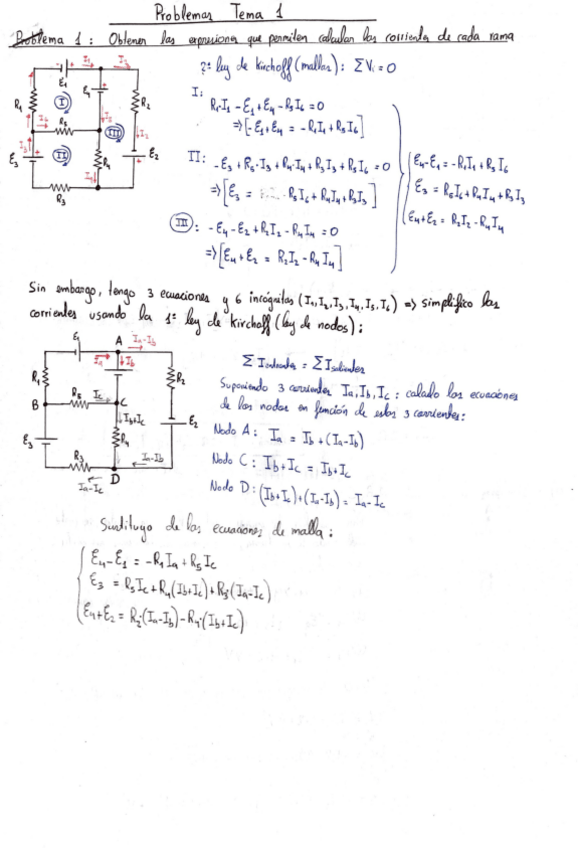 Problemas Tema 1
Problema 1: Obtener las expresiones que permiten calcular las corrientes de cada rama
2ª ley de Kirchoff (mallas): ΣVi = 0
I:
R1·I1 - E1 + E4 - R5I6 = 0
=> [-E1 + E4 = -R1I1 + R5I6]
II:
-E3 + R5·I3 + R4·I4 + R3I3 + R5I6 = 0
=> [E3 = R5I6 + R4I4 + R3I3]
III: -E4 - E2 + R2I2 - R4I4 = 0
=> [E4 + E2 = R2I2 - R4I4]
E4 - E1 = -R1I1 + R5I6
E3 = R5I6 + R4I4 + R3I3
E4 + E2 = R2I2 - R4I4
E1
E4
R1
I
R2
R5
III
II
E3
R4
E2
R3
Sin embargo, tengo 3 ecuaciones y 6 incógnitas (I1, I2, I3, I4, I5, I6) => simplifico las
corrientes usando la 1ª ley de Kirchoff (ley de nodos):
E1
A
Ia-Ib
Ia
Ib
R1
R2
B
R5
Ic
C
Ib+Ic
E3
R4
E2
R3
Ia-Ib
Ia-Ic
D
Σ Ientrante = Σ Isaliente
Suponiendo 3 corrientes Ia, Ib, Ic: calculo las ecuaciones
de los nodos en función de estas 3 corrientes:
Nodo A: Ia = Ib + (Ia-Ib)
Nodo C: Ib+Ic = Ib+Ic
Nodo D: (Ib+Ic) + (Ia-Ib) = Ia-Ic
Sustituyo de las ecuaciones de malla:
E4 - E1 = -R1Ia + R5Ic
E3 = R5Ic + R4(Ib+Ic) + R3·(Ia-Ic)
E4 + E2 = R2·(Ia-Ib) - R4·(Ib+Ic)